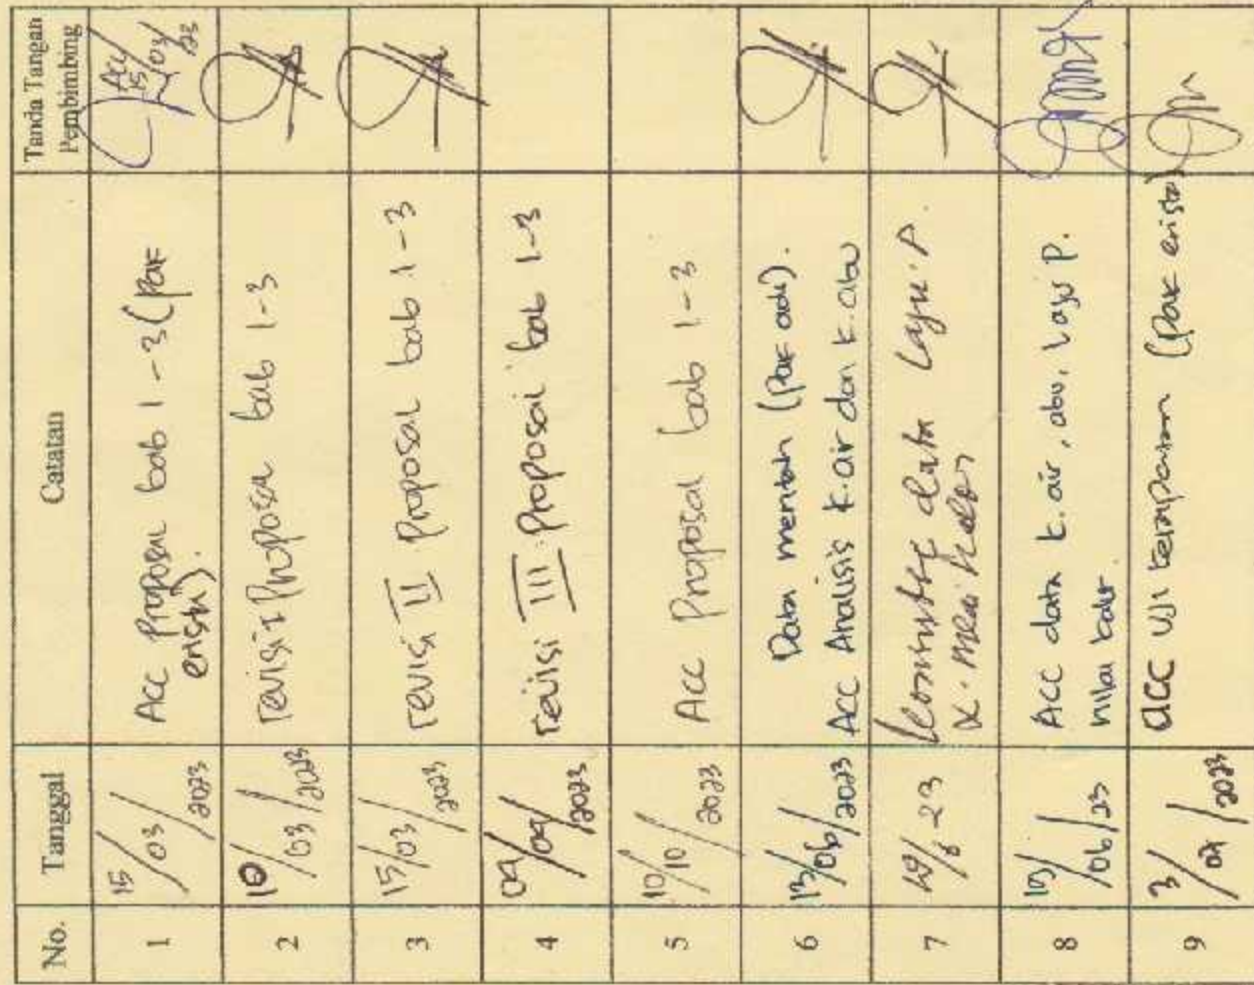 No. Tanggal Catatan Tanda Tangan Pembimbing
1 15/03/2023 Acc Proposal bab 1-3 (Pak
erista).
Acc 15/03/23
2 10/03/2023 revisi I Proposal bab 1-3
3 15/03/2023 revisi II Proposal bab 1-3
4 revisi III Proposal bab 1-3
5 10/10/2023 Acc Proposal bab 1-3
6 13/06/2023 Data mentah (Pak adi).
Acc Analisis k.air dan k.abu
7 data Laju P.
8 /06/23 Acc data k.air, abu, laju P.
nilai kalor
9 acc Uji kerapatan (Pak erista)